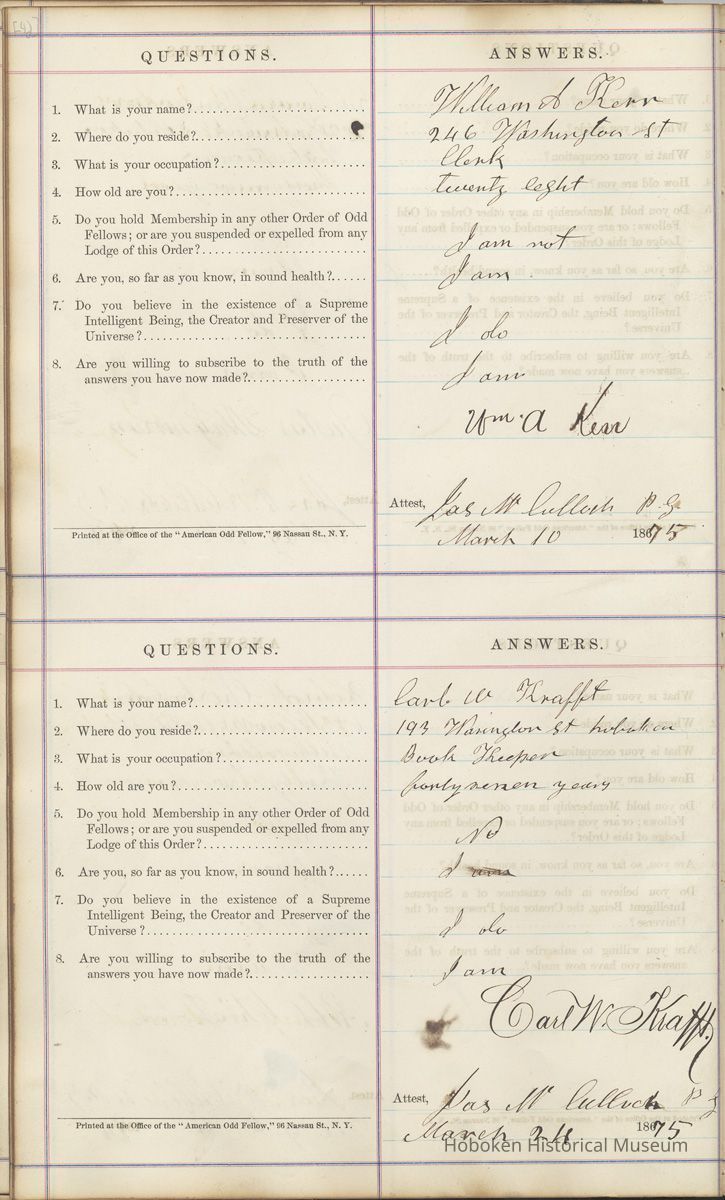 QUESTIONS.
ANSWERS.
1. What is your name?
William A Kerr
2. Where do you reside?
246 Washington St
3. What is your occupation?
Clerk
4. How old are you?
twenty eight
5. Do you hold Membership in any other Order of Odd
Fellows; or are you suspended or expelled from any
Lodge of this Order?
I am not
6. Are you, so far as you know, in sound health?
I am.
7. Do you believe in the existence of a Supreme
Intelligent Being, the Creator and Preserver of the
Universe?
I do
8. Are you willing to subscribe to the truth of the
answers you have now made?
I am
Wm. A Kerr
Attest, Jas Mc Culloch P. G
Printed at the Office of the "American Odd Fellow," 96 Nassau St., N. Y.
March 10 1875
QUESTIONS.
ANSWERS.
1. What is your name?
Carl W Krafft
2. Where do you reside?
193 Wasington St hoboken
3. What is your occupation?
Book Keeper
4. How old are you?
forty years
5. Do you hold Membership in any other Order of Odd
Fellows; or are you suspended or expelled from any
Lodge of this Order?
No
6. Are you, so far as you know, in sound health?
I am
7. Do you believe in the existence of a Supreme
Intelligent Being, the Creator and Preserver of the
Universe?
I do
8. Are you willing to subscribe to the truth of the
answers you have now made?
I am
Carl W. Krafft
Attest, Jas Mc Culloch P G
Printed at the Office of the "American Odd Fellow," 96 Nassau St., N. Y.
March 24 1875
Hoboken Historical Museum